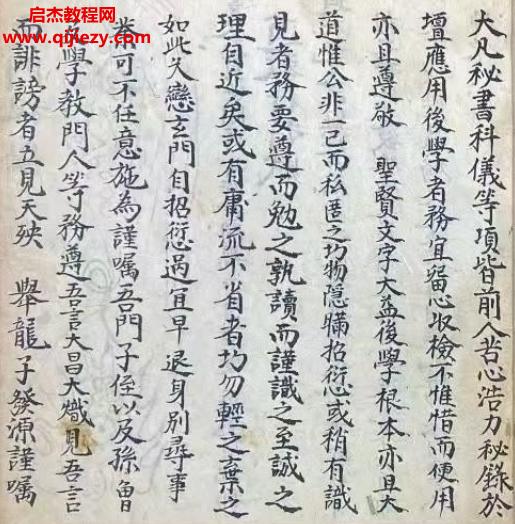 启杰教程网
www.qijiezy.com
大凡秘書科儀等項皆前人苦心浩力秘錄於
壇應用後學者務宜留心收檢不惟惜而便用
亦且遵敬 聖賢文字大益後學根本亦且大
道惟公非一己而私匿之切物隱瞞招愆或稍有識
見者務要遵而勉之孰讀而謹識之至誠之
理自近矣或有庸流不省者切勿輕之棄之
如此久戀玄門自招愆過宜早退身別尋事
業可不任意施為謹嘱吾門子侄以及孫曾
後學教門人等務遵吾言大昌大熾見吾言
而誹謗者立見天殃 舉龍子發源謹嘱